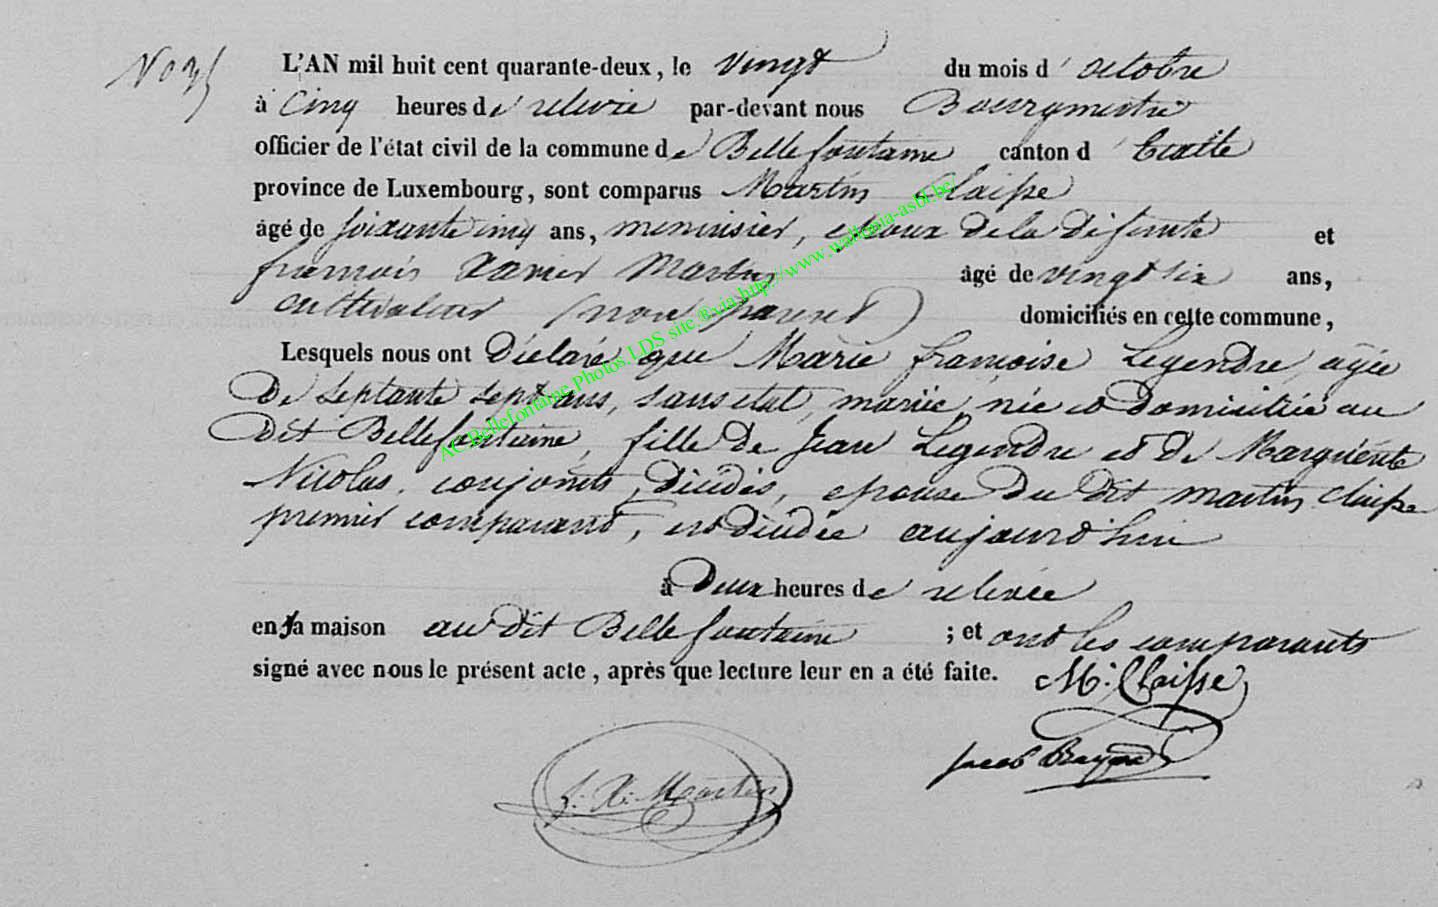 L'AN mil huit cent quarante-deux, le vingt du mois d' octobre
à Cinq heures de relevée par-devant nous Bourgmestre
officier de l'état civil de la commune de Bellefontaine canton d' Etalle
province de Luxembourg, sont comparus Martin Claisse
âgé de soixante cinq ans, menuisier, epoux de la defunte et
francois Xavier Martin âgé de vingt six ans,
cultivateur (non parent) domiciliés en cette commune,
Lesquels nous ont Déclaré que Marie françoise Legendre, agée
De septante sept ans, sans etat, mariée, née et Domiciliée au
dit Bellefontaine, fille de Jean Legendre et de Marguerite
Nicolas, conjoints, Décédés, epouse Du Dit martin Claisse
premier comparant, est Décédée aujourd'hui
à Deux heures de relevée
en sa maison au dit Bellefontaine ; et ont les comparants
signé avec nous le présent acte, après que lecture leur en a été faite. M: Claisse
f: X: Martin
AC Bellefontaine Photos LDS site ®via http://www.wallonia-asbl.be/